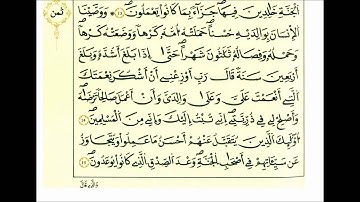 ثمن
الجنة خالدين فيها جزاء بما كانوا يعملون ووصينا
الإنسان بوالديه حسنا حملته أمه كرها ووضعته كرها
وحمله وفصاله ثلثون شهرا حتى إذا بلغ أشده وبلغ
أربعين سنة قال رب أوزعني أن أشكر نعمتك
التي أنعمت علي وعلى والدي وأن أعمل صالحا ترضيه
وأصلح لي في ذريتي إني تبت إليك وإني من المسلمين
أولئك الذين يتقبل عنهم أحسن ما عملوا ويتجاوز
عن سيئاتهم في أصحاب الجنة وعد الصدق الذي كانوا يوعدون
والذي قال